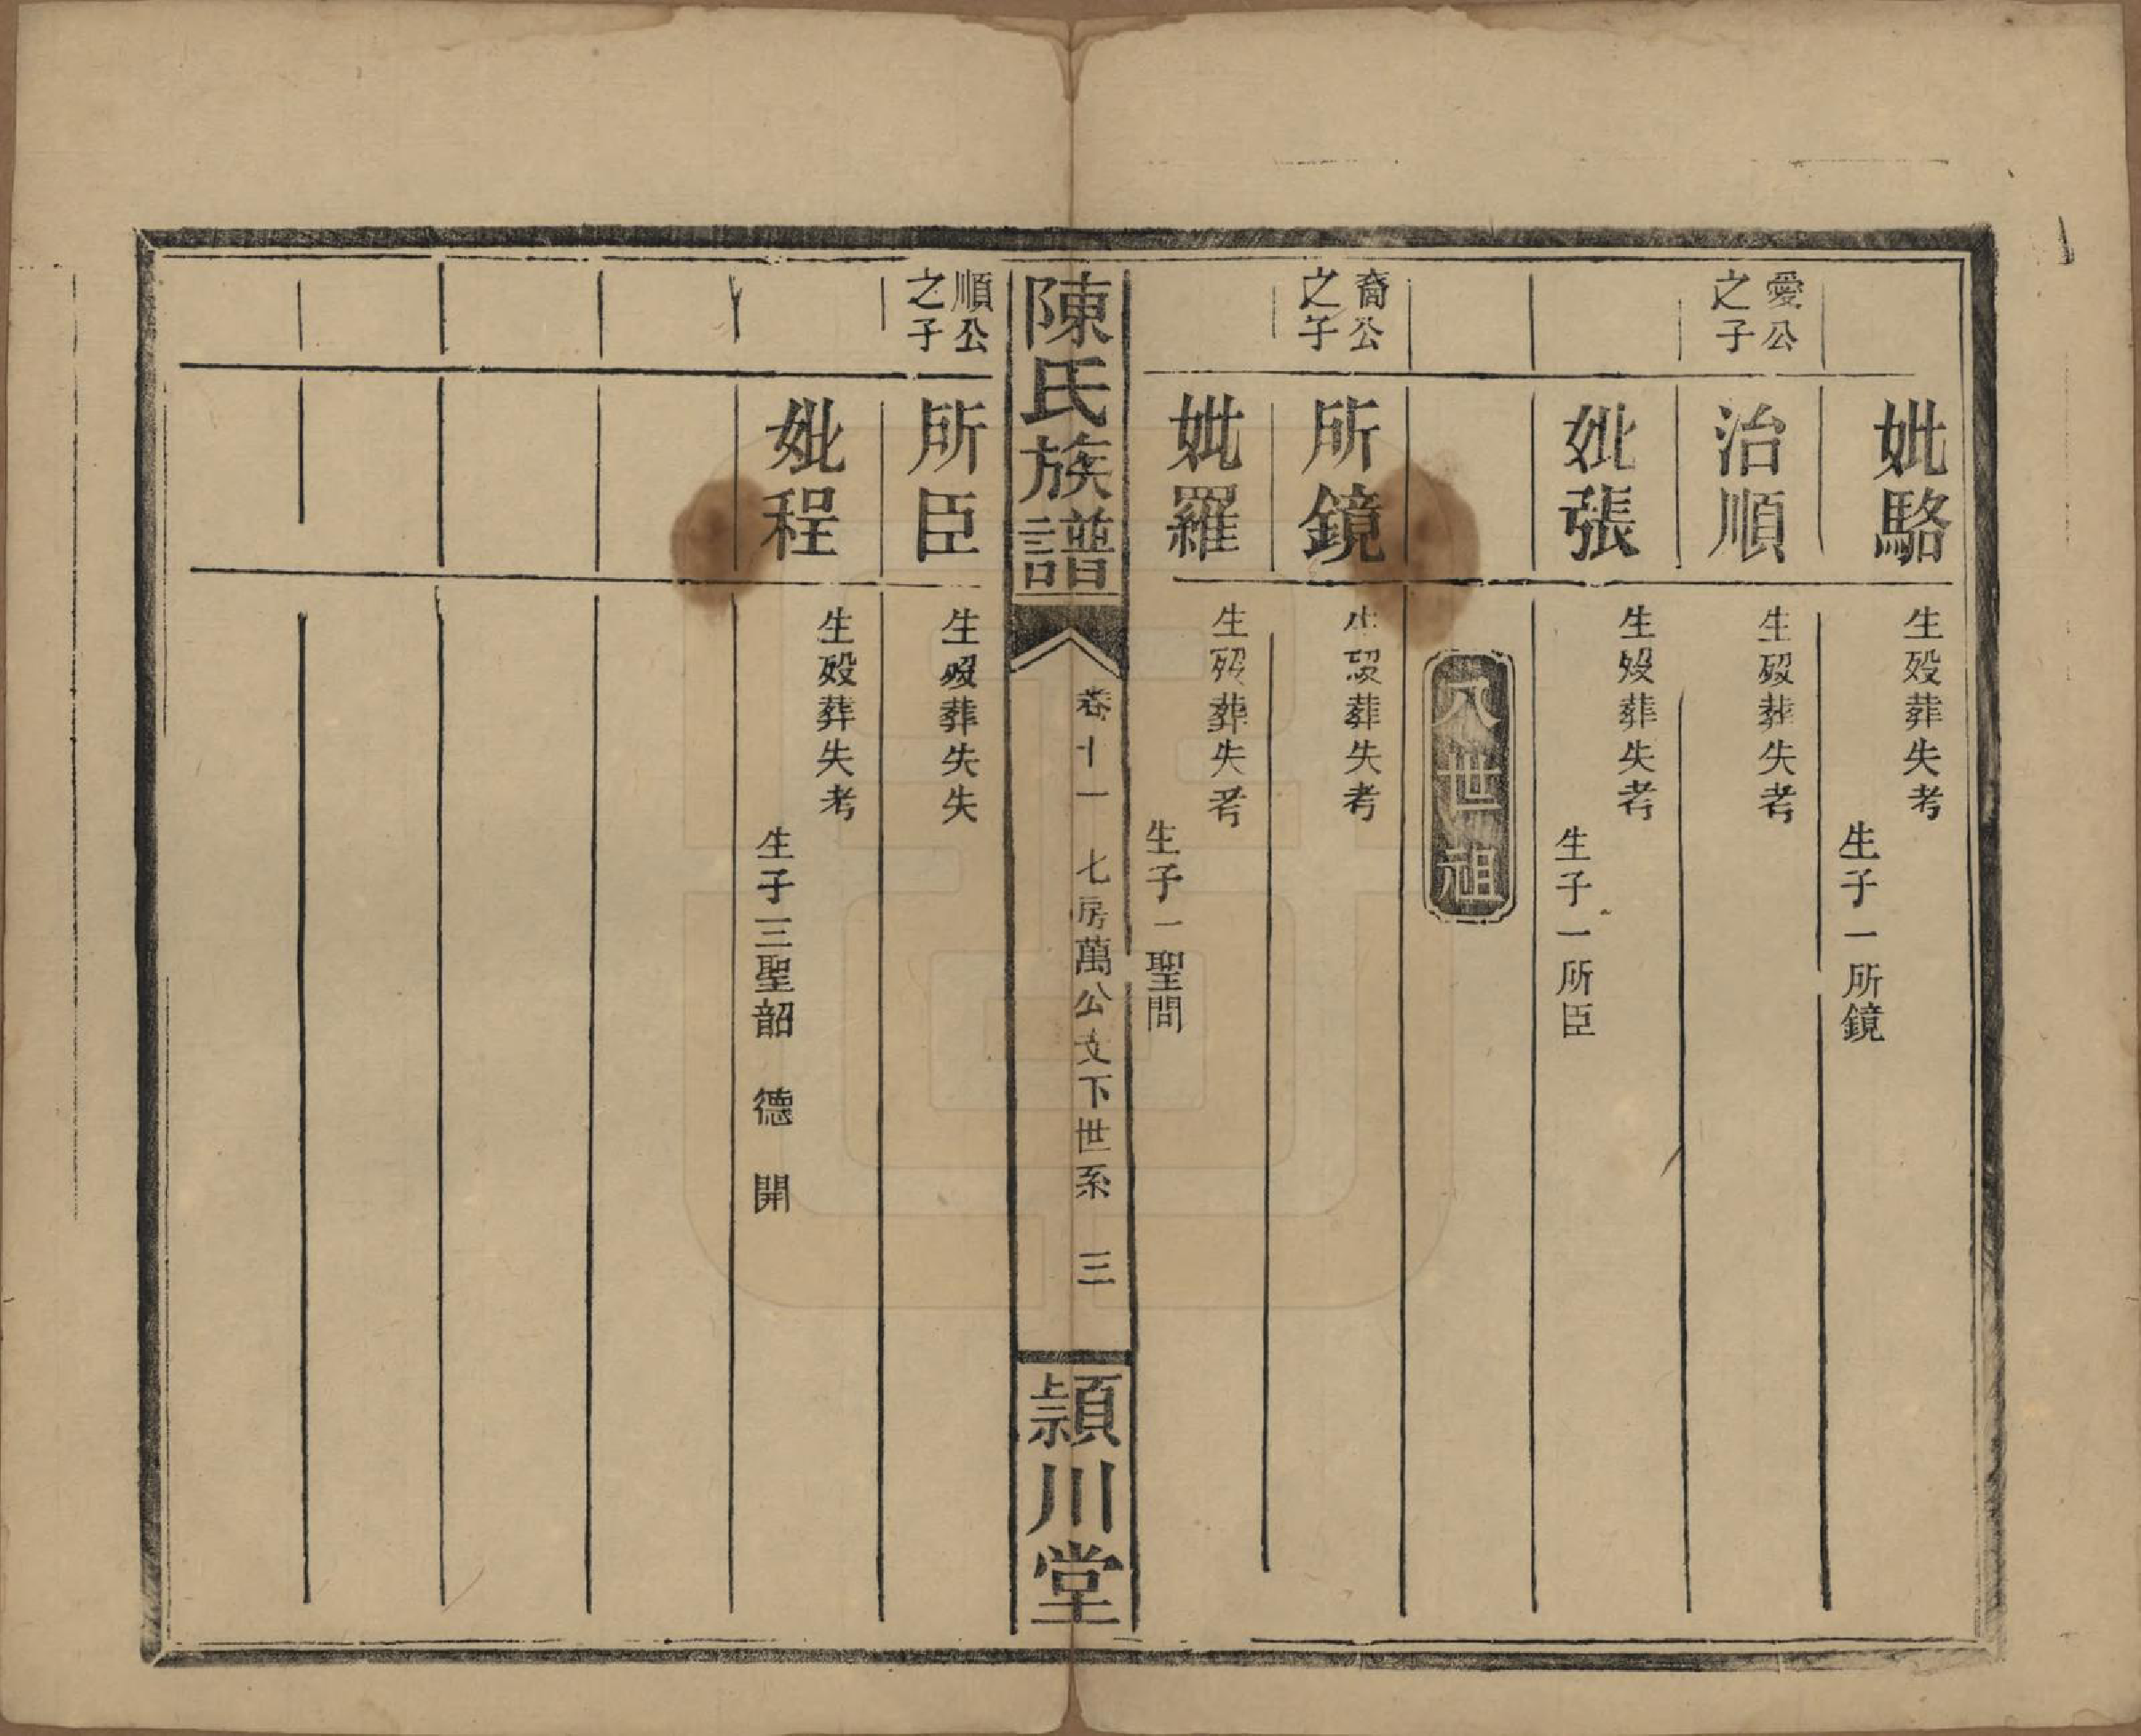 妣駱
生歿葬失考
生子一所鏡
愛公之子
治順
生歿葬失考
妣張
生歿葬失考
生子一所臣
八世祖
裔公之子
所鏡
生歿葬失考
妣羅
生歿葬失考
生子一聖問
陳氏族譜
卷十一 七房萬公支下世系 三
潁川堂
順公之子
所臣
生歿葬失失
妣程
生歿葬失考
生子三聖韶 德 開